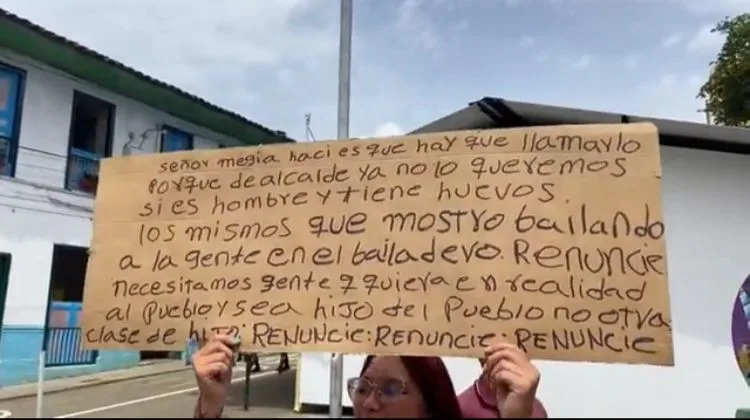 señor megia haci es que hay que llamarlo
Porque de alcalde ya no lo queremos
si es hombre y tiene huevos.
los mismos que mostro bailando
a la gente en el bailadero. Renuncie
necesitamos gente q quiera en realidad
al Pueblo y sea hijo del Pueblo no otra
clase de hijo: RENUNCie: Renuncie: RENUNCie